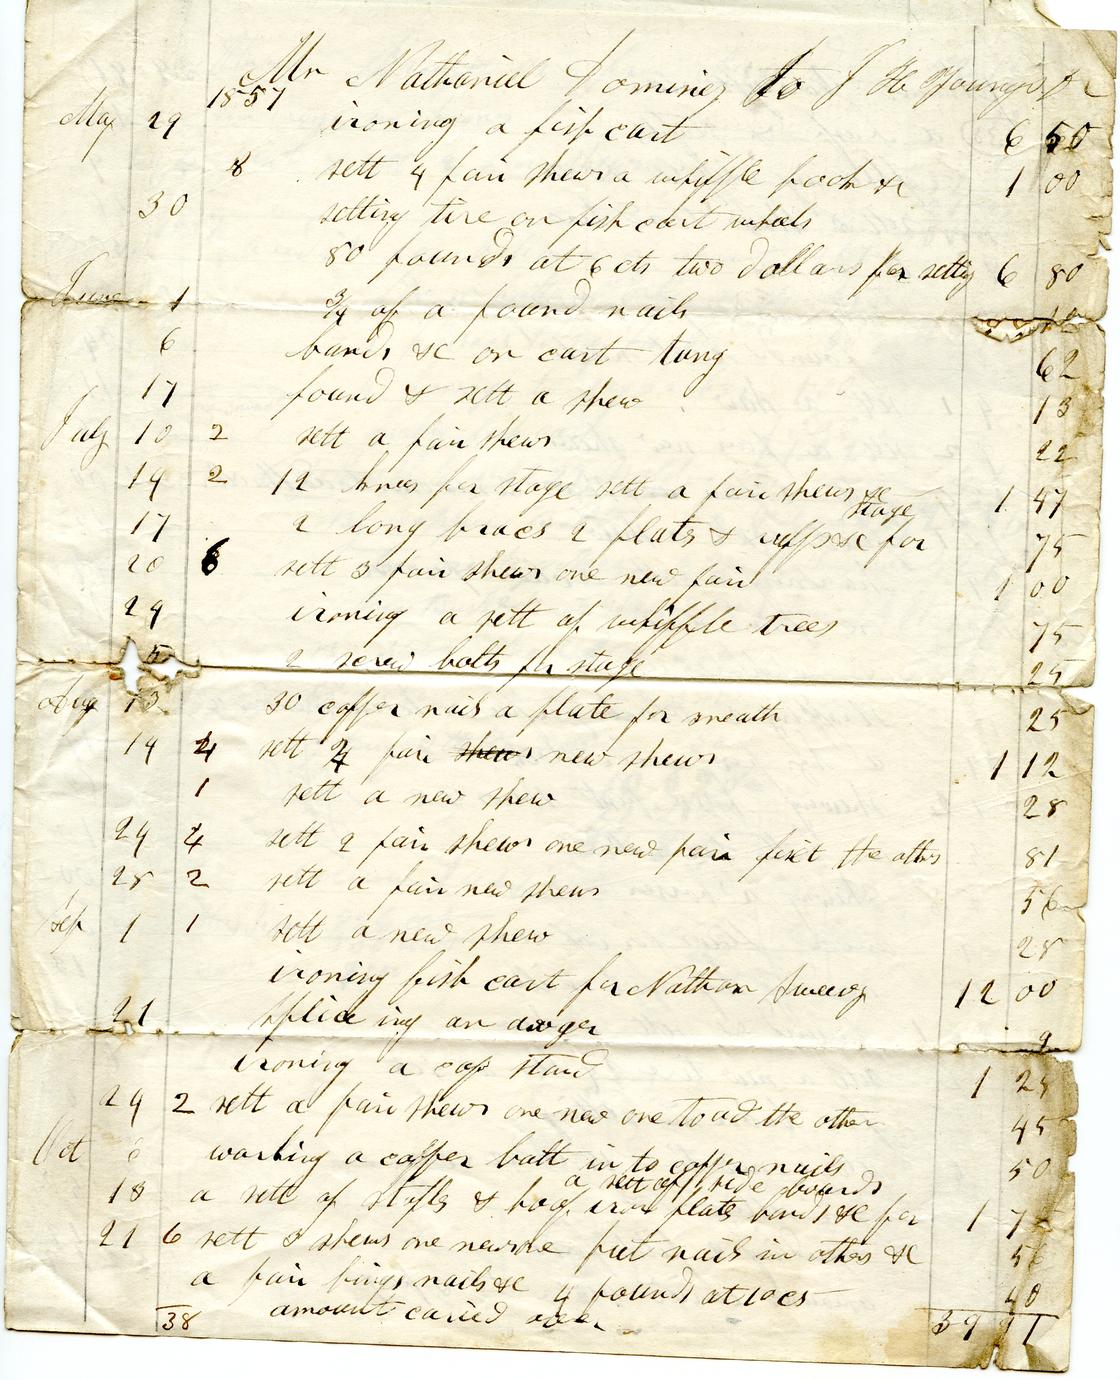 Mr Nathaniel Dominey To J H Youngs Dr
1857
May 29 ironing a fish cart 6 50
8 sett 4 pair shews a whiffle hook &c 1 00
30 setting tire on fish cart wheels
80 pounds at 6 cts two dollars for setting 6 80
June 1 3/4 of a pound nails 12
6 bands &c on cart tung 62
17 found & sett a shew 13
July 10 2 sett a pair shews 22
14 2 12 knees for stage sett a pair shews &c 1 47
17 2 long braces 2 flats & &c for stage 75
20 6 sett 3 pair shews one new pair 1 00
24 ironing a sett of whiffle trees 75
5 2 screw bolts for stage 25
Aug 13 30 copper nails a plate for sneath 25
14 4 sett 2 pair shews new shews 1 12
1 sett a new shew 28
24 4 sett 2 pair shews one new pair the other 81
28 2 sett a pair new shews 56
Sep 1 1 sett a new shew 28
ironing fish cart for Nathan 12 00
21 spliceing an awger 9
ironing a cap stand 1 25
24 2 sett a pair shews one new one toud the other 45
Oct 6 working a copper bolt in to copper nails 50
18 a sett of & hoop iron flats bands &c for a sett of side boards 1 7
21 6 sett 3 shews one new one put nails in others &c 56
a pair nails &c 4 pounds at 10 cs 40
38 amount caried over 39 91